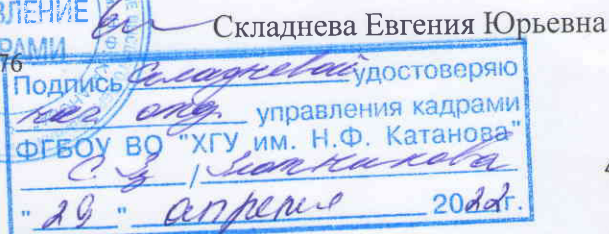 ВЛЕНИЕ
РАМИ
Складнева Евгения Юрьевна
76
Подпись Складневой удостоверяю
нач отд. управления кадрами
ФГБОУ ВО "ХГУ им. Н.Ф. Катанова"
"29" апреля 2022г.